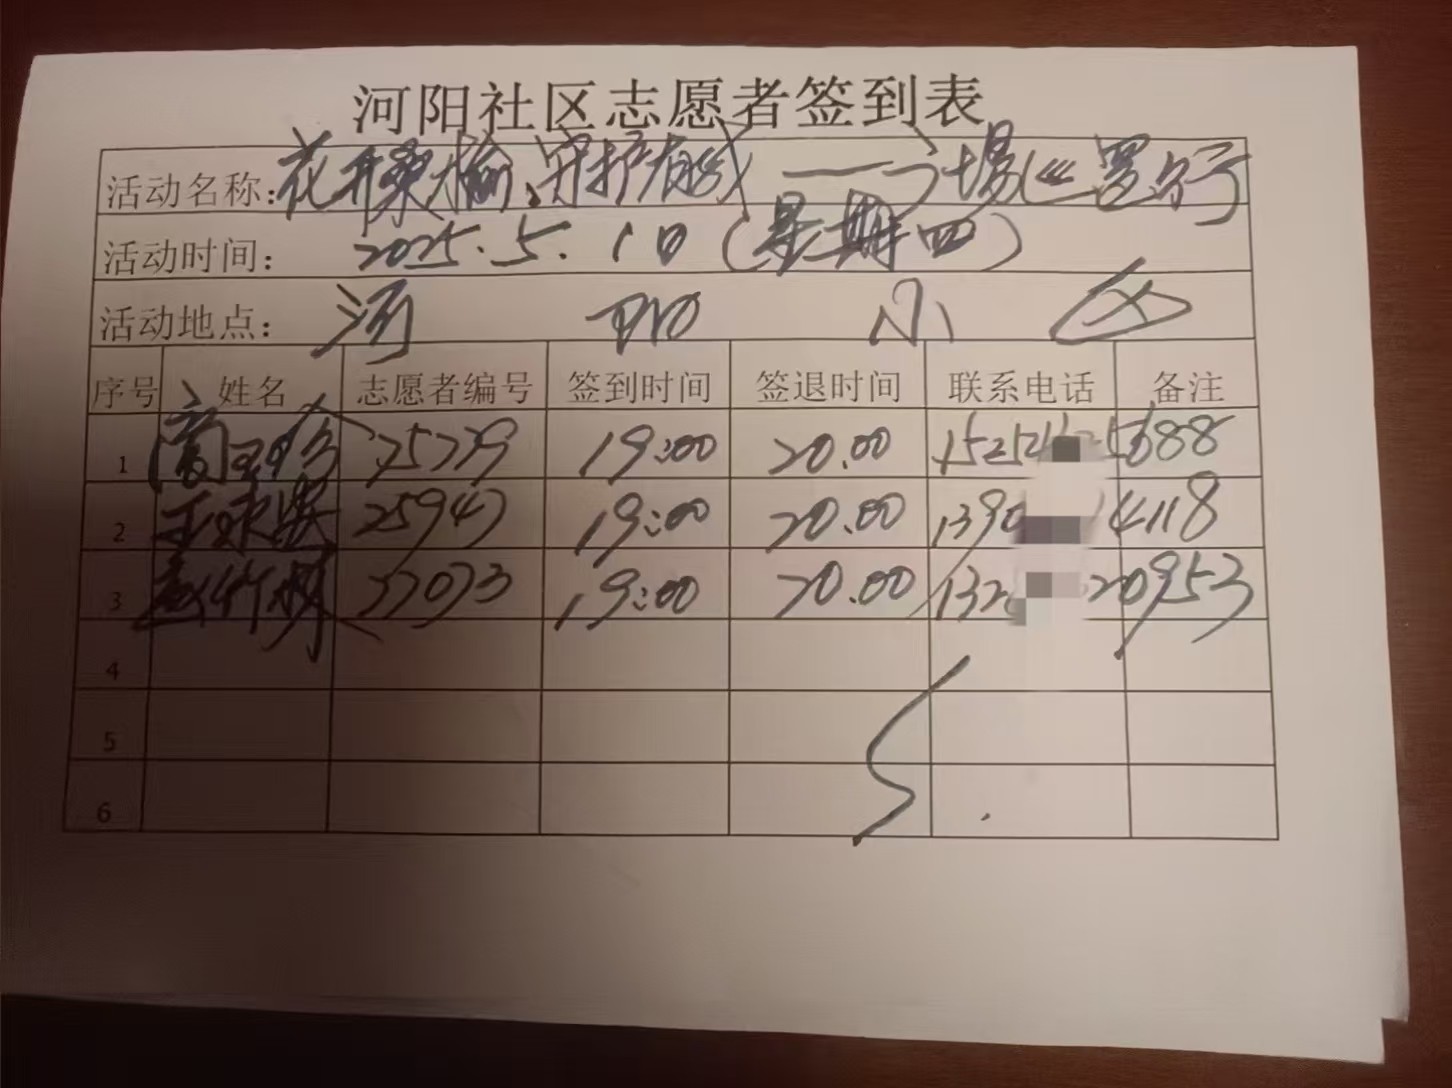 河阳社区志愿者签到表
活动名称：花开桑榆、守护有我——广场
活动时间：2025.5.1日（星期四）
活动地点：河阳小区
序号 姓名 志愿者编号 签到时间 签退时间 联系电话 备注
1 75779 19:00 20.00 5688
2 王永安 25947 19:00 20.00 1390 4118
3 37073 19:00 20.00 132 20953
4
5
6